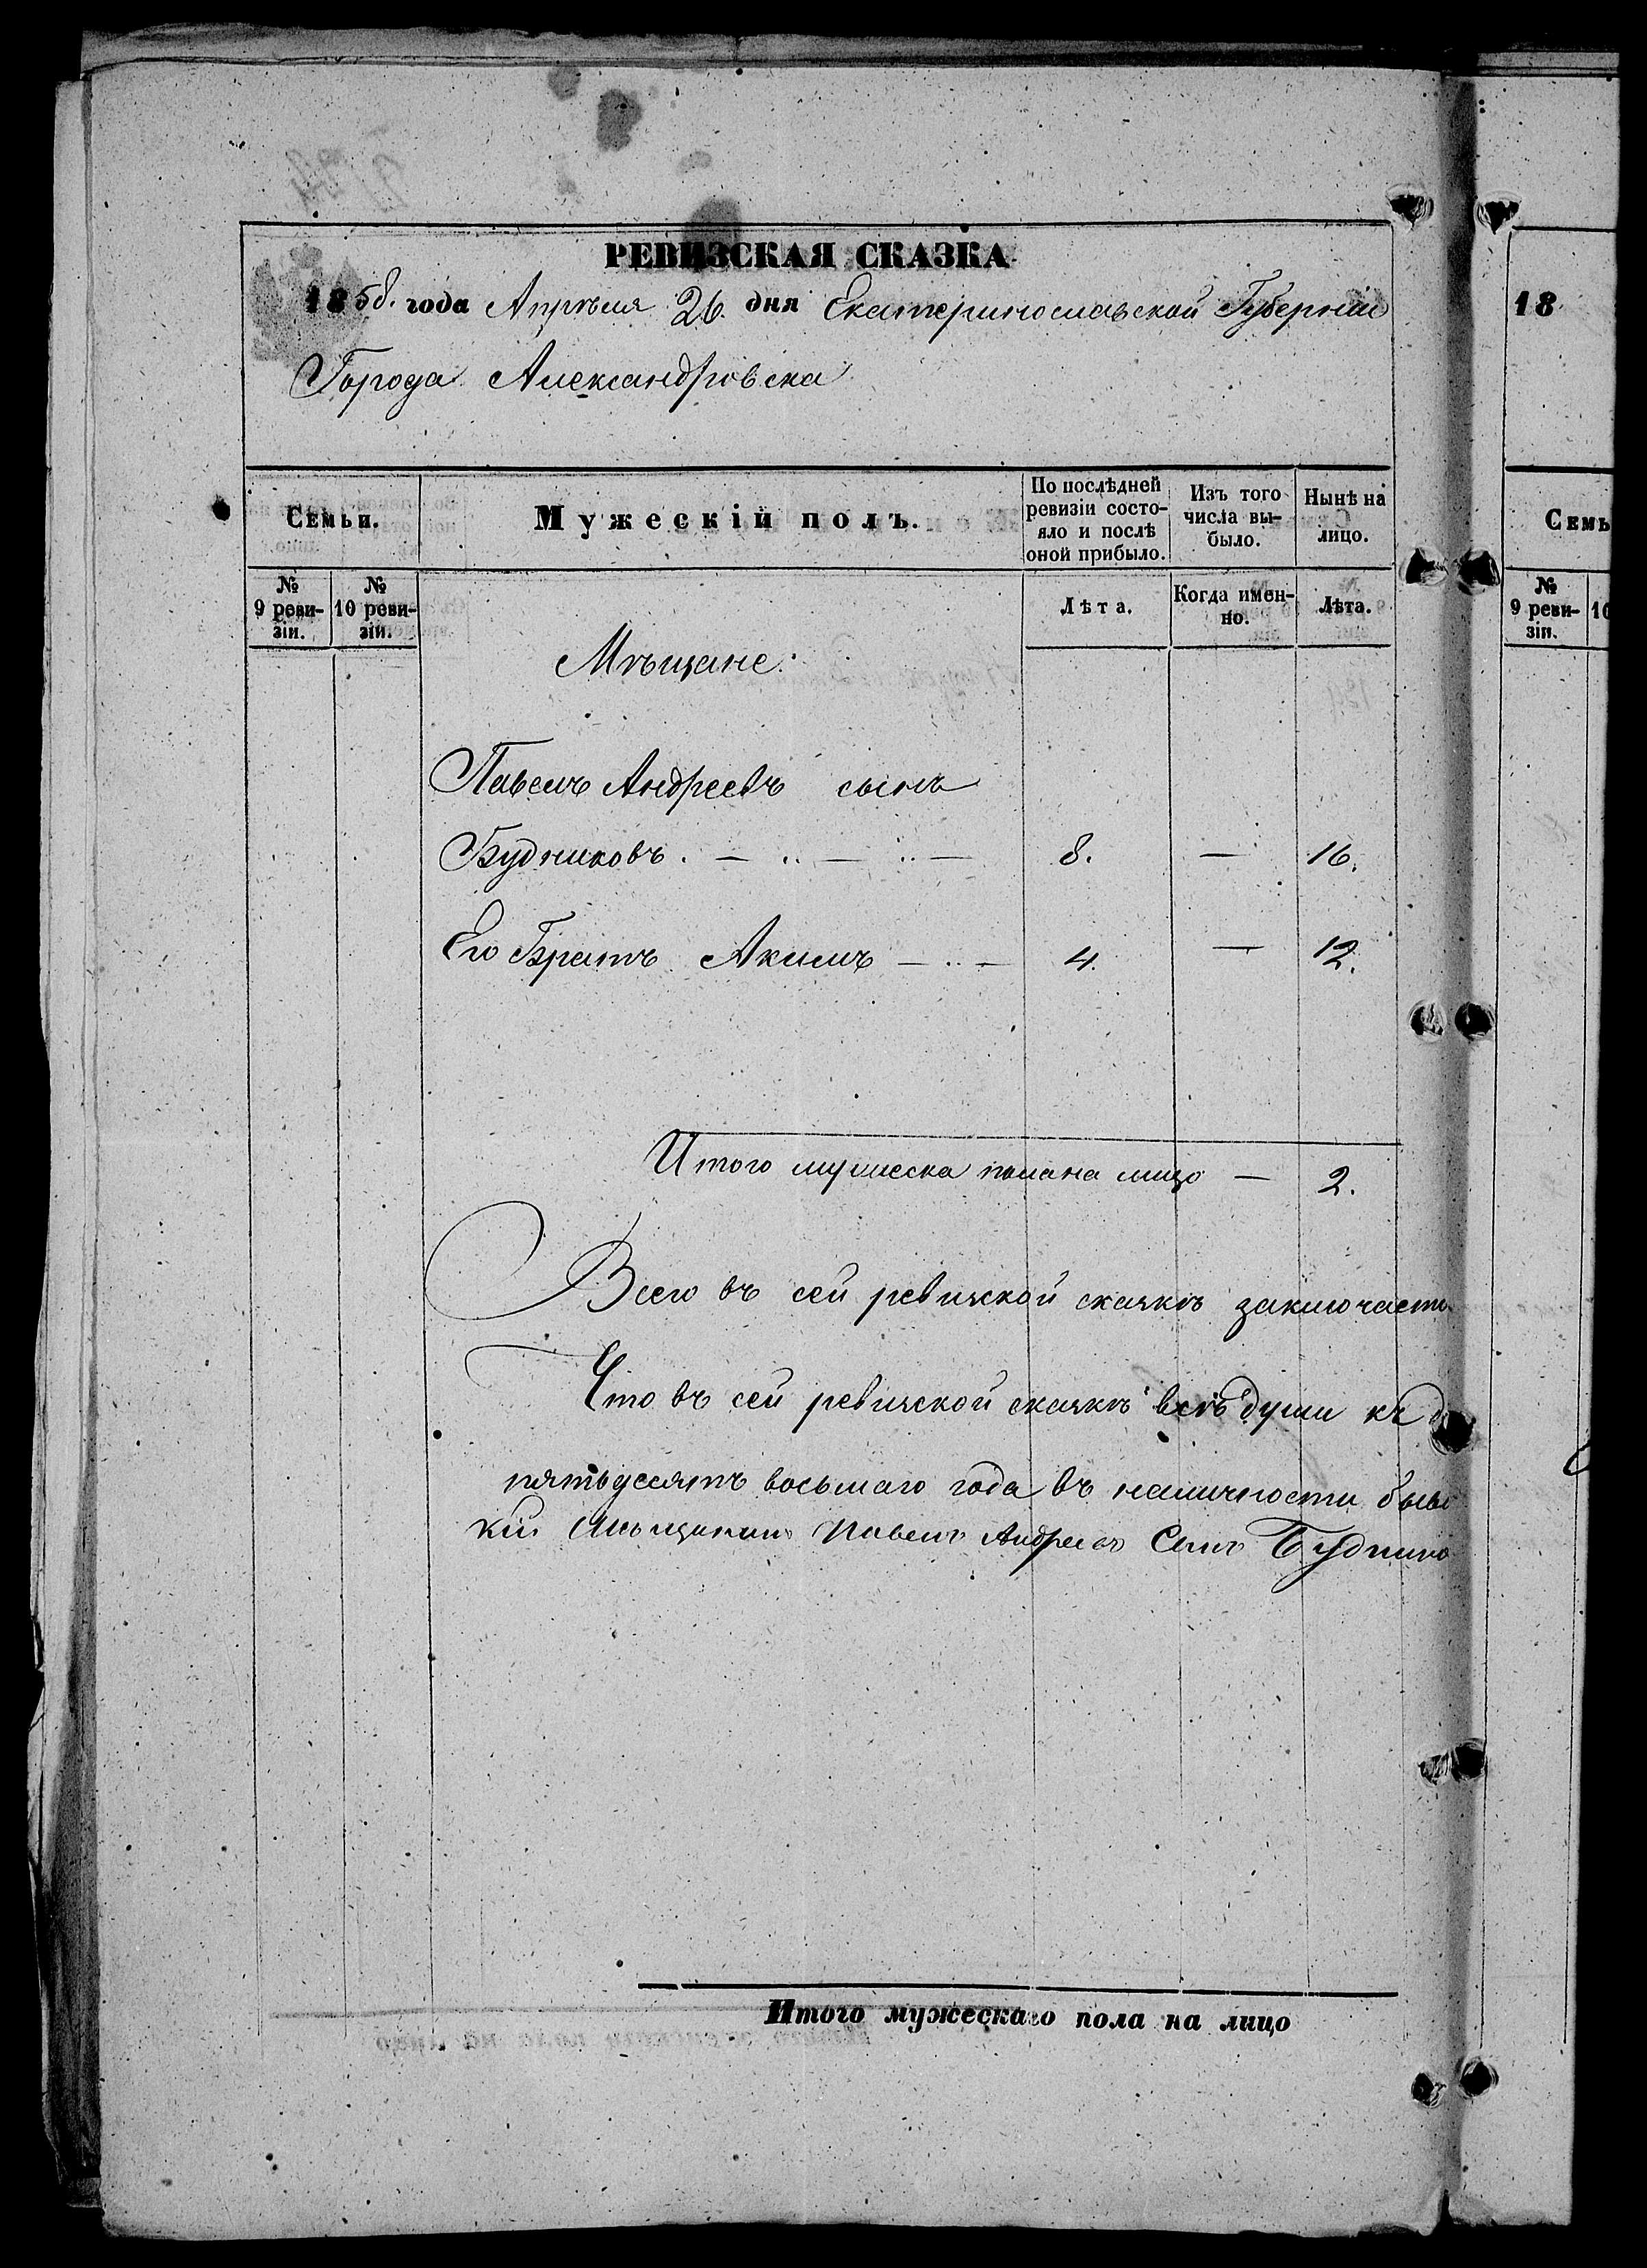 РЕВИЗСКАЯ СКАЗКА
1858. года Апрѣля 26. дня Екатеринославской Губерніи
Города Александровска
Семьи.
Мужескій полъ.
По послѣдней ревизіи состо-
яло и послѣ
оной прибыло.
Изъ того
числа вы-
было.
Нынѣ на
лицо.
№
9 реви-
зіи.
№
10 реви-
зіи.
Лѣта.
Когда имен-
но.
Лѣта.
Мѣщане.
Павелъ Андреевъ сынъ
Будниковъ. — .. — .. — 8. — 16.
Его Братъ Акимъ — .. — 4. — 12.
Итого мужеска пола на лицо — 2.
Всего въ сей ревизской сказкѣ заключаетъ
Что въ сей ревизской сказкѣ всѣ души къ
пятьдесятъ восьмаго года въ наличности бывш
кій Мѣщанинъ Павелъ Андреевъ Сынъ Будnико
Итого мужескаго пола на лицо
18
Семь
№
9 реви-
зіи.
10